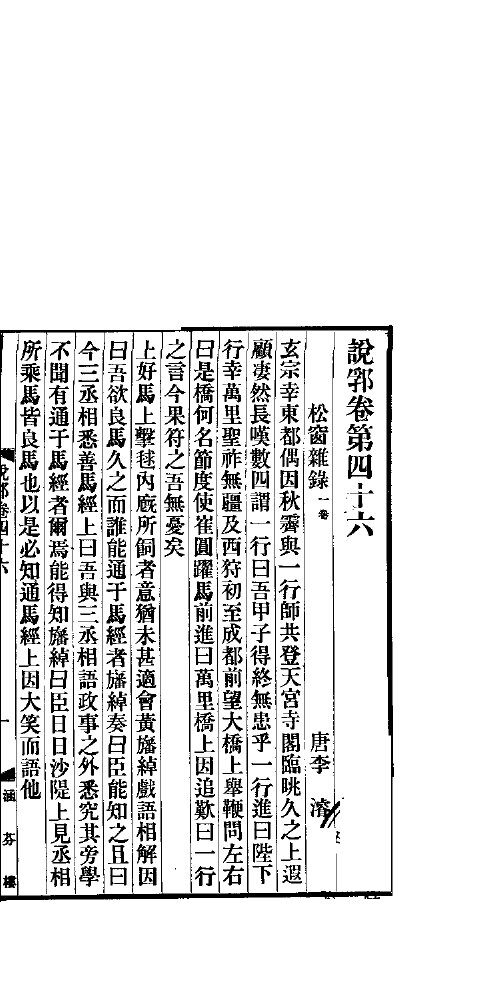 說郛卷第四十六
松窗雜錄一卷 唐李濬
玄宗幸東都偶因秋霽與一行師共登天宮寺閣臨眺久之上遐
顧淒然長嘆數四謂一行曰吾甲子得終無患乎一行進曰陛下
行幸萬里聖祚無疆及西狩初至成都前望大橋上舉鞭問左右
曰是橋何名節度使崔圓躍馬前進曰萬里橋上因追歎曰一行
之言今果符之吾無憂矣
上好馬上擊毬內廄所飼者意猶未甚適會黃旛綽戲語相解因
曰吾欲良馬久之而誰能通于馬經者旛綽奏曰臣能知之且曰
今三丞相悉善馬經上曰吾與三丞相語政事之外悉究其旁學
不聞有通于馬經者爾焉能得知旛綽曰臣日日沙隄上見丞相
所乘馬皆良馬也以是必知通馬經上因大笑而語他
說郛卷四十六
一
涵芬樓